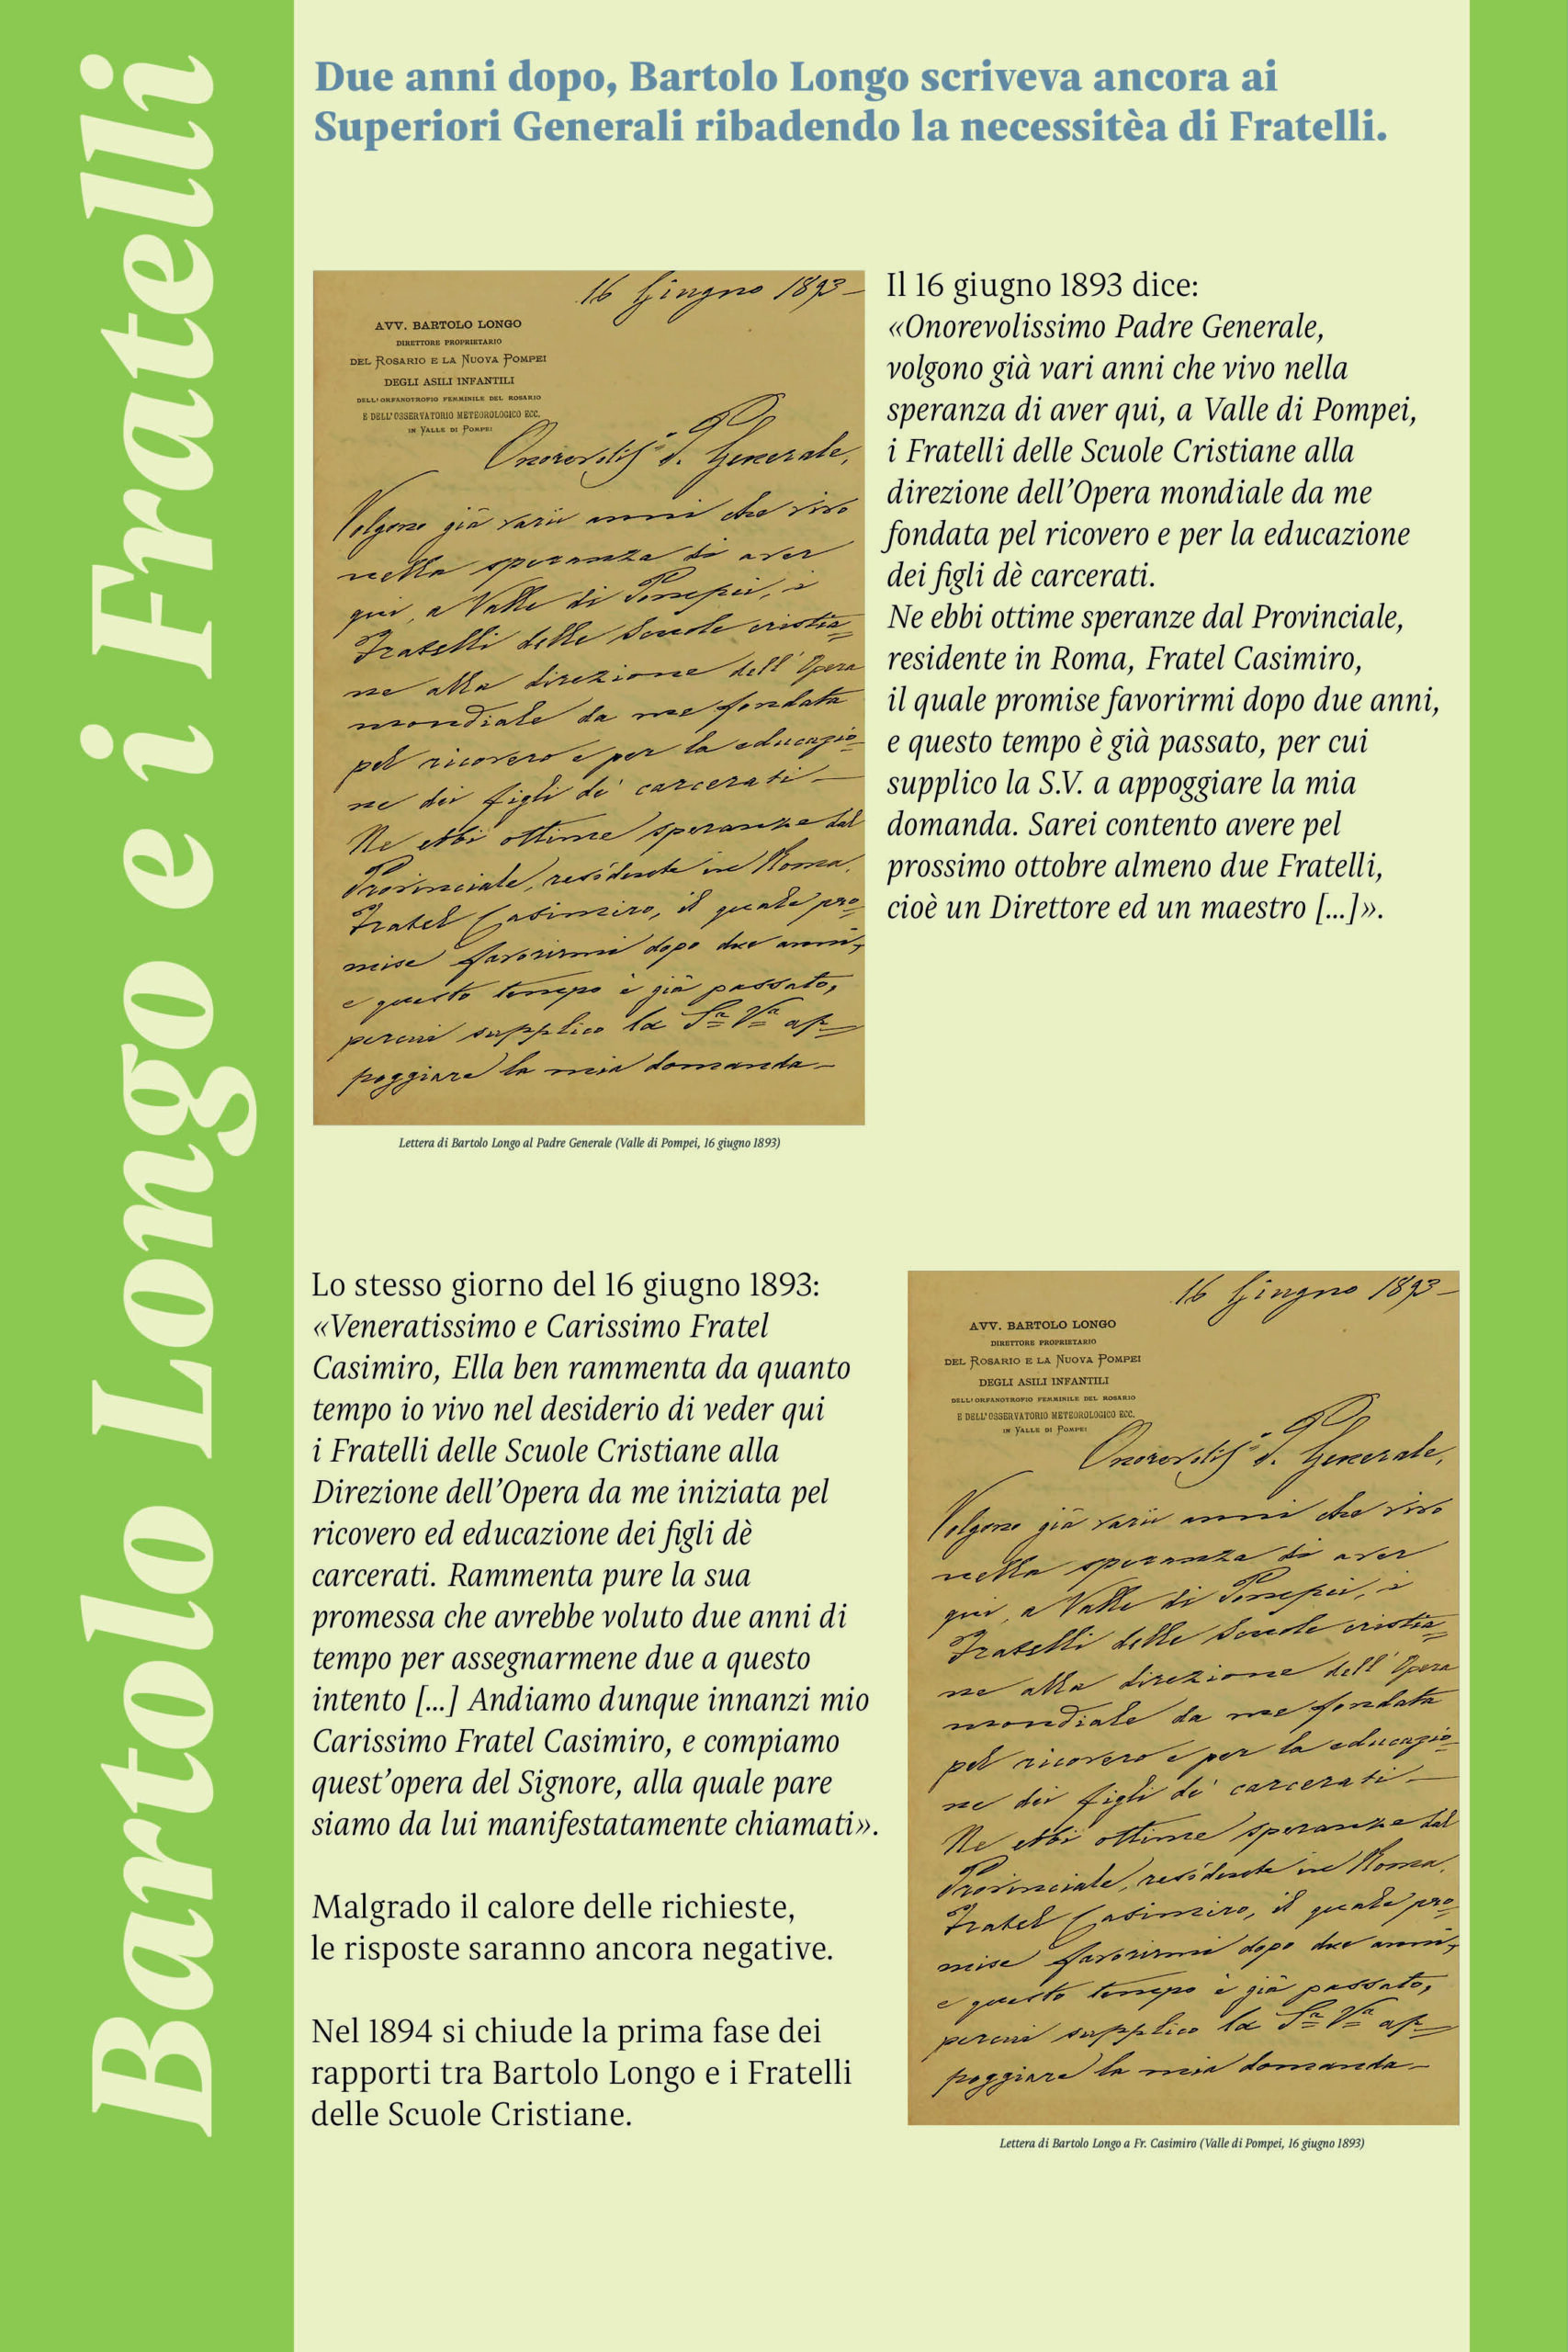 Bartolo Longo e i Fratelli
Due anni dopo, Bartolo Longo scriveva ancora ai
Superiori Generali ribadendo la necessitèa di Fratelli.
16 Giugno 1893
AVV. BARTOLO LONGO
DIRETTORE PROPRIETARIO
DEL ROSARIO E LA NUOVA POMPEI
DEGLI ASILI INFANTILI
DELL'ORFANOTROFIO FEMMINILE DEL ROSARIO
E DELL'OSSERVATORIO METEOROLOGICO ECC.
IN VALLE DI POMPEI
Onorevoliss.° P. Generale,
Volgono già varii anni che vivo
nella speranza di aver
qui, a Valle di Pompei, i
Fratelli delle Scuole cristia=
ne alla direzione dell'Opera
mondiale da me fondata
pel ricovero e per la educazio=
ne dei figli de' carcerati —
Ne ebbi ottime speranze dal
Provinciale, residente in Roma,
Fratel Casimiro, il quale pro=
mise favorirmi dopo due anni,
e questo tempo è già passato,
percui supplico la S.a V.a ap=
poggiare la mia domanda —
Lettera di Bartolo Longo al Padre Generale (Valle di Pompei, 16 giugno 1893)
Il 16 giugno 1893 dice:
«Onorevolissimo Padre Generale,
volgono già vari anni che vivo nella
speranza di aver qui, a Valle di Pompei,
i Fratelli delle Scuole Cristiane alla
direzione dell'Opera mondiale da me
fondata pel ricovero e per la educazione
dei figli dè carcerati.
Ne ebbi ottime speranze dal Provinciale,
residente in Roma, Fratel Casimiro,
il quale promise favorirmi dopo due anni,
e questo tempo è già passato, per cui
supplico la S.V. a appoggiare la mia
domanda. Sarei contento avere pel
prossimo ottobre almeno due Fratelli,
cioè un Direttore ed un maestro [...]».
Lo stesso giorno del 16 giugno 1893:
«Veneratissimo e Carissimo Fratel
Casimiro, Ella ben rammenta da quanto
tempo io vivo nel desiderio di veder qui
i Fratelli delle Scuole Cristiane alla
Direzione dell'Opera da me iniziata pel
ricovero ed educazione dei figli dè
carcerati. Rammenta pure la sua
promessa che avrebbe voluto due anni di
tempo per assegnarmene due a questo
intento [...] Andiamo dunque innanzi mio
Carissimo Fratel Casimiro, e compiamo
quest'opera del Signore, alla quale pare
siamo da lui manifestatamente chiamati».
Malgrado il calore delle richieste,
le risposte saranno ancora negative.
Nel 1894 si chiude la prima fase dei
rapporti tra Bartolo Longo e i Fratelli
delle Scuole Cristiane.
16 Giugno 1893
AVV. BARTOLO LONGO
DIRETTORE PROPRIETARIO
DEL ROSARIO E LA NUOVA POMPEI
DEGLI ASILI INFANTILI
DELL'ORFANOTROFIO FEMMINILE DEL ROSARIO
E DELL'OSSERVATORIO METEOROLOGICO ECC.
IN VALLE DI POMPEI
Onorevoliss.° P. Generale,
Volgono già varii anni che vivo
nella speranza di aver
qui, a Valle di Pompei, i
Fratelli delle Scuole cristia=
ne alla direzione dell'Opera
mondiale da me fondata
pel ricovero e per la educazio=
ne dei figli de' carcerati —
Ne ebbi ottime speranze dal
Provinciale, residente in Roma,
Fratel Casimiro, il quale pro=
mise favorirmi dopo due anni,
e questo tempo è già passato,
percui supplico la S.a V.a ap=
poggiare la mia domanda —
Lettera di Bartolo Longo a Fr. Casimiro (Valle di Pompei, 16 giugno 1893)